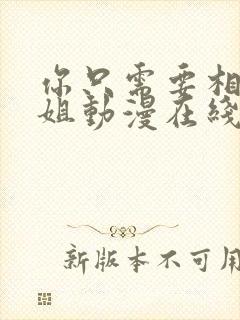 你只需要相
姐動漫在綫
新版本不可用